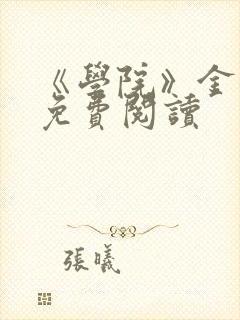 《學院》金
免費閱讀
張曦